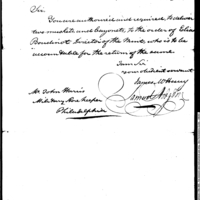 Sir
You are authorised and required to deliver
two muskets and bayonets to the order of Elias
Boudinot Director of the Mint, who is to be
accountable for the return of the same
I am Sir
your obedient servant
James McHenry
Mr John Harris
Military Store keeper
Philadelphia